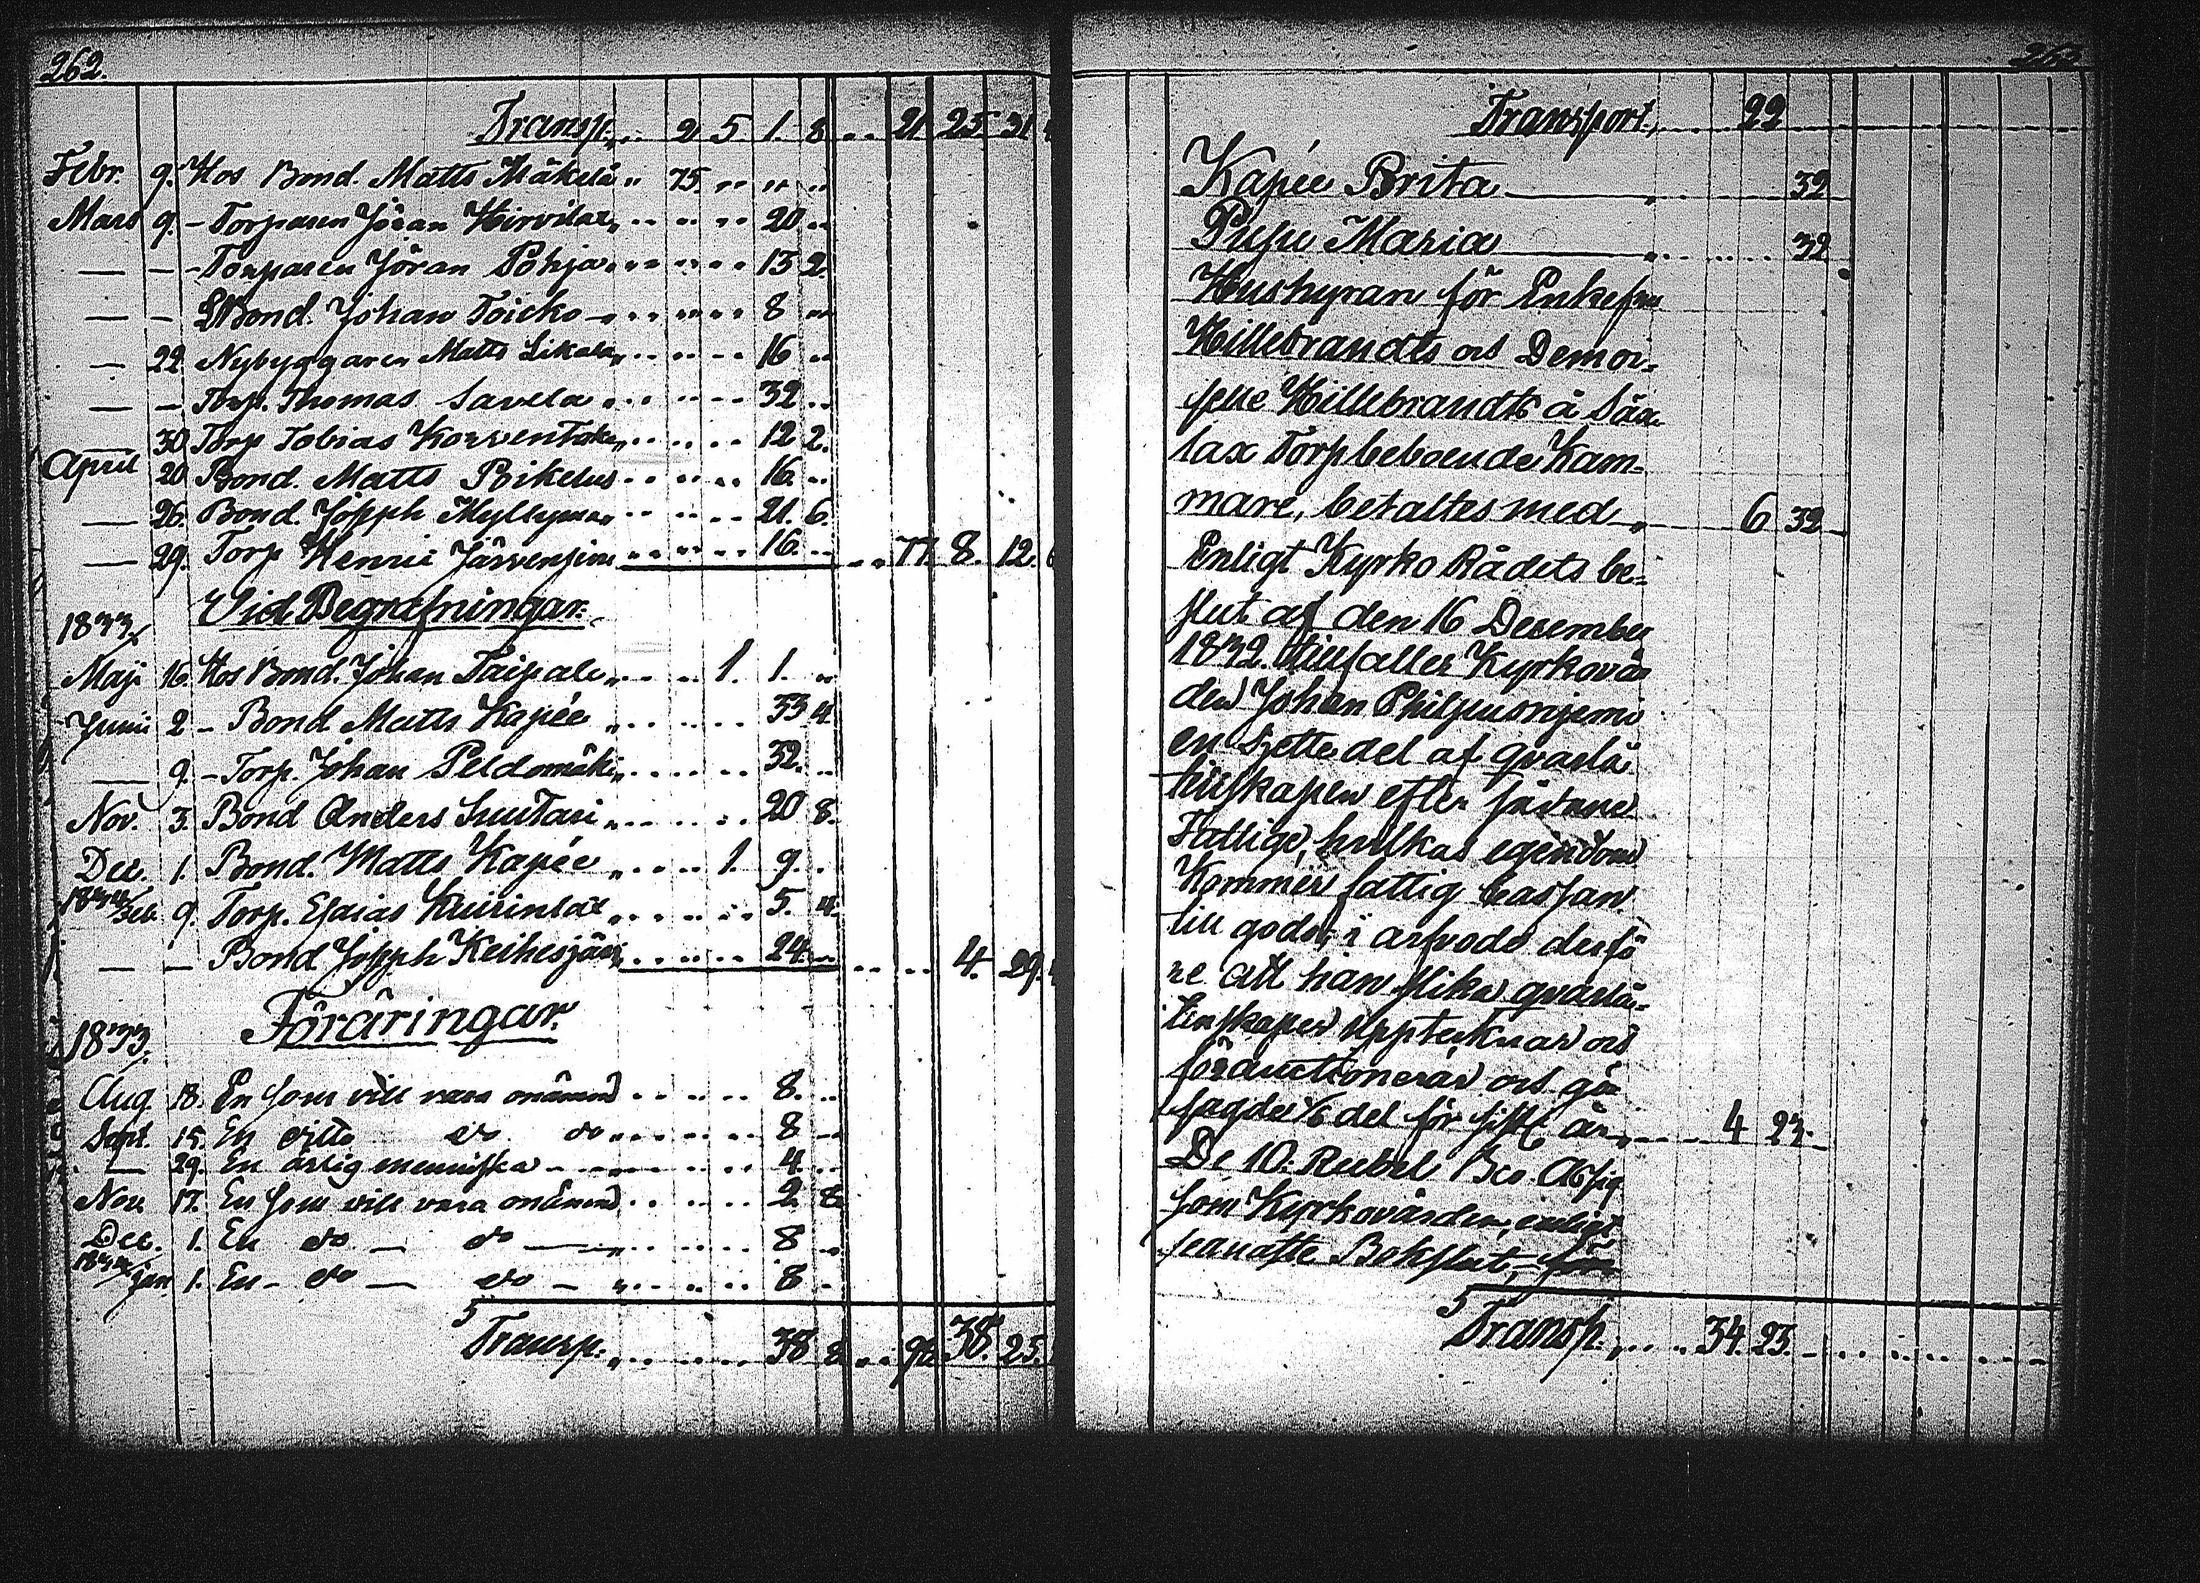 262.
Transp. „ .. 2 5. 1. 8. .. 21. 25. 31.
Febr. 9. Hos Bond. Matts Mäkelä „ 75. .. .. ..
Mars 9. - Torparen Jöran Hirvilax „ .. .. .. 20 ..
— — - Torparen Jöran Pohja .. .. .. .. 13 2.
— — Bond. Johan Töicko .. .. .. 8 ..
— 22. Nybyggaren Matts Likala „ .. .. .. 16 ..
— — Torp. Thomas Savela „ .. .. .. 32 ..
— 30. Torp Tobias Korven „ .. .. .. 12 2.
April 20 Bond. Matts Pikelus .. .. .. 16. ..
— 26. Bond. Joseph Myllymä .. .. .. 21. 6.
— 29. Torp Henric .. .. .. 16. .. .. 77. 8. 12.
1833. Vid Begrafningar.
Maji 16. Hos Bond. Johan Taipale „ .. .. 1. 1. ..
Junii 2 - Bond Matts Kapée „ .. .. .. 33 4.
— 9. - Torp. Johan Peldomäki „ .. .. .. 32. ..
Nov. 3. Bond Anders Suutari „ .. .. .. 20 8.
Dec. 1. Bond. Matts Kapée „ .. .. 1. 9. ..
1834/Feb. 9. Torp. Esaias .. .. .. 5. 4.
— — Bond Joseph Keihesjärvi .. .. .. 24. .. .. .. 4. 29.
1833. Föräringar.
Aug. 18. En som vill vara onämnd .. .. .. 8. ..
Sept. 15. En ditto do do .. .. .. 8 ..
— 29. En ärlig menniska .. .. .. 4. ..
Nov. 17. En som vill vara onämnd .. .. .. 2. 8.
Dec. 1. En do — do — „ .. .. .. 8 ..
1834/jan. 1. En - do — do — „ .. .. .. 8 -
Transp. „ .. .. .. 38 8. .. 38. 25.
263.
Transport „ .. .. 22
Kapée Brita — „ 32
Maria — „ .. .. 32
Hushyran för Enkefru
Hillebrandts och Demoi-
selle Hillebrandts å Sää
lax Torp beboende Kam-
mare, betaltes med „ 6 32
Enligt Kyrko Rådets be-
slut af den 16 December
1832. tillfaller Kyrkovär
den Johan
en Sjette del af qvarlå
tenskapen efter sådane
Fattige, hvilkas egendom
Kommer fattig Cassan
till godo, i arfvode derfö
re att han slika qvarlå-
tenskaper uppteknar och
förauctionerar och gör
sagde 1/6 del för sistl. år „ .. .. 4 23.
De 10. Rubel Bco Assig
som Kyrkovärden, enligt
senaste Bokslut,
Transp. „ .. .. 34. 23. ..